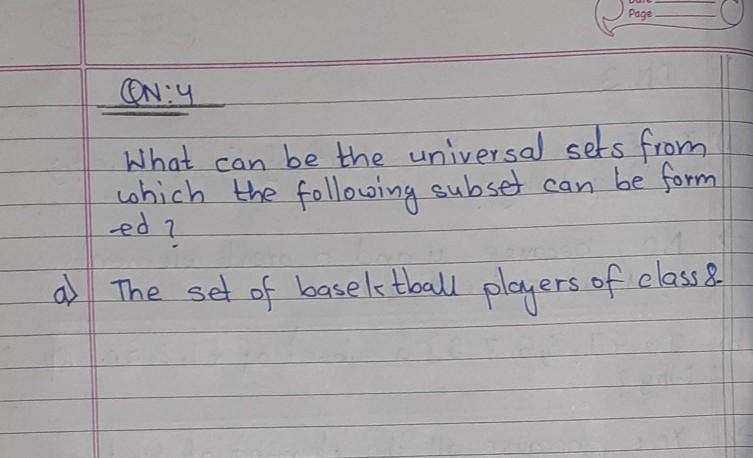 Page
QN:4
What can be the universal sets from
which the following subset can be form
ed ?
a) The set of basektball players of class 8